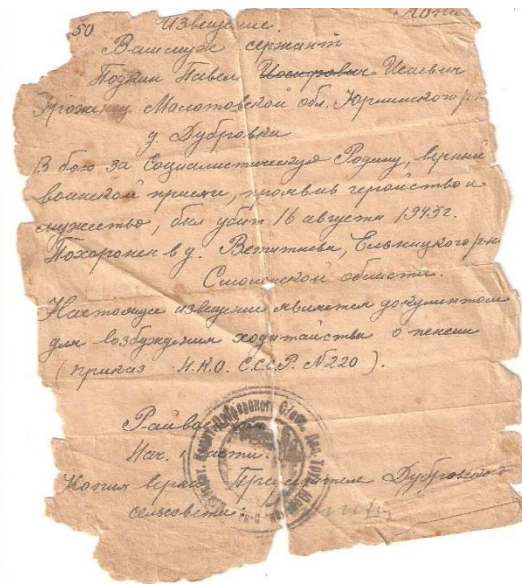 50. Извещение. Копия
Ваш муж сержант
Исаевич
Уроженец Молотовской обл. Юрлинского р-н
д Дубровка
В бою за Социалистическую Родину, верный
воинской присяге, проявив геройство и
мужество, был убит 16 августа 1943 г.
Похоронен в д. Ельнинского р-н
Смоленской области.
Настоящее извещение является документом
для возбуждения ходатайства о пенсии
(приказ Н.К.О. С.С.С.Р. №220).
Райвоенком
Нач. части
Копия верна Председатель Дубровского
сельсовета: